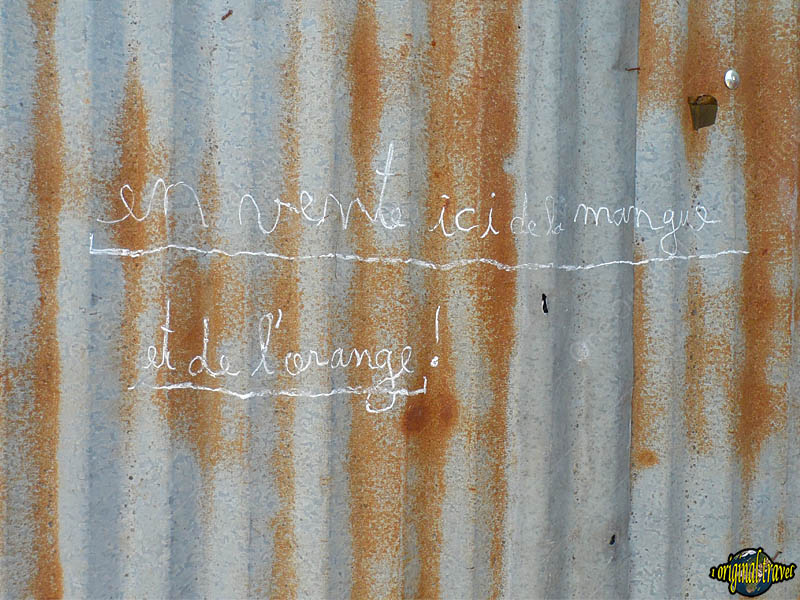 en vente ici de la mangue
et de l'orange!
1 original travel